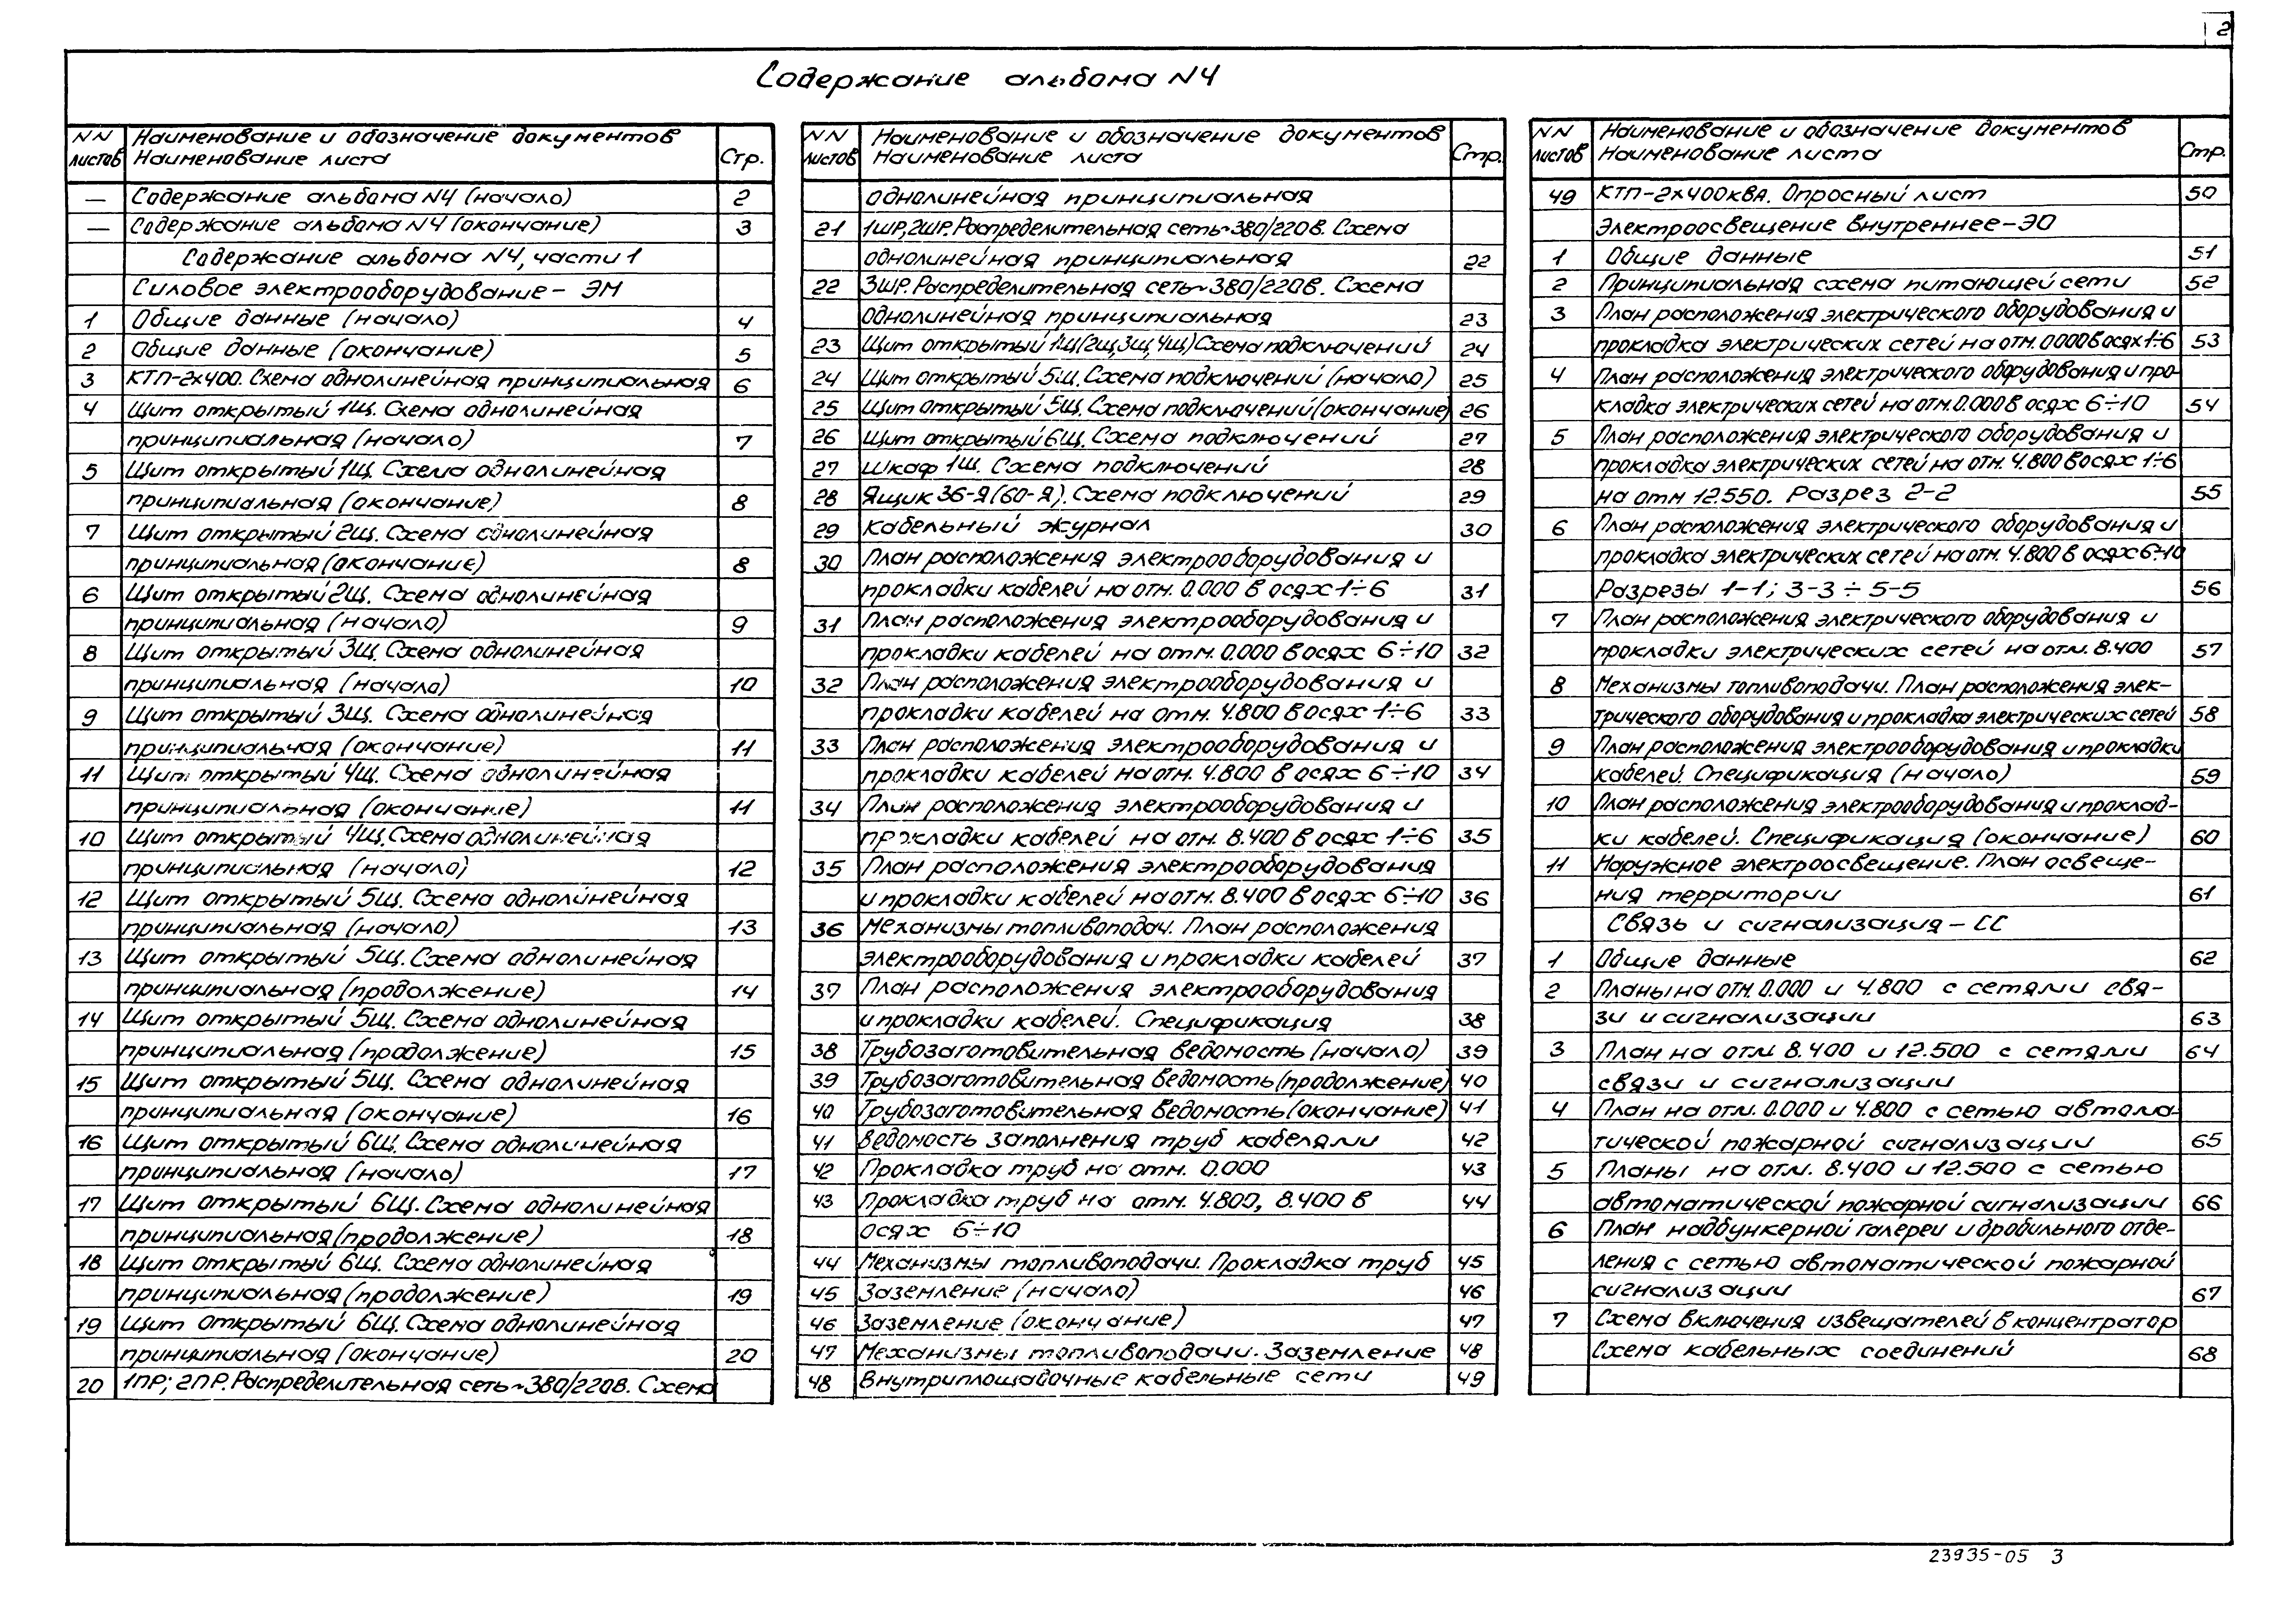 2
Содержание альбома N4
NN листов Наименование и обозначение документов Наименование листа Стр.
— Содержание альбома N4 (начало) 2
— Содержание альбома N4 (окончание) 3
Содержание альбома N4, части 1
Силовое электрооборудование – ЭМ
1 Общие данные (начало) 4
2 Общие данные (окончание) 5
3 КТП-2х400. Схема однолинейная принципиальная 6
4 Щит открытый 1Щ. Схема однолинейная
принципиальная (начало) 7
5 Щит открытый 1Щ. Схема однолинейная
принципиальная (окончание) 8
7 Щит открытый 2Щ. Схема однолинейная
принципиальная (окончание) 8
6 Щит открытый 2Щ. Схема однолинейная
принципиальная (начало) 9
8 Щит открытый 3Щ. Схема однолинейная
принципиальная (начало) 10
9 Щит открытый 3Щ. Схема однолинейная
принципиальная (окончание) 11
11 Щит открытый 4Щ. Схема однолинейная
принципиальная (окончание) 11
10 Щит открытый 4Щ. Схема однолинейная
принципиальная (начало) 12
12 Щит открытый 5Щ. Схема однолинейная
принципиальная (начало) 13
13 Щит открытый 5Щ. Схема однолинейная
принципиальная (продолжение) 14
14 Щит открытый 5Щ. Схема однолинейная
принципиальная (продолжение) 15
15 Щит открытый 5Щ. Схема однолинейная
принципиальная (окончание) 16
16 Щит открытый 6Щ. Схема однолинейная
принципиальная (начало) 17
17 Щит открытый 6Щ. Схема однолинейная
принципиальная (продолжение) 18
18 Щит открытый 6Щ. Схема однолинейная
принципиальная (продолжение) 19
19 Щит открытый 6Щ. Схема однолинейная
принципиальная (окончание) 20
20 1ПР; 2ПР. Распределительная сеть ~380/220В. Схема
NN листов Наименование и обозначение документов Наименование листа Стр.
однолинейная принципиальная
21 1ШР, 2ШР. Распределительная сеть ~380/220В. Схема
однолинейная принципиальная 22
22 3ШР. Распределительная сеть ~380/220В. Схема
однолинейная принципиальная 23
23 Щит открытый 1Щ (2Щ, 3Щ, 4Щ) Схема подключений 24
24 Щит открытый 5Щ. Схема подключений (начало) 25
25 Щит открытый 5Щ. Схема подключений (окончание) 26
26 Щит открытый 6Щ. Схема подключений 27
27 Шкаф 1Ш. Схема подключений 28
28 Ящик 36-Я (60-Я). Схема подключений 29
29 Кабельный журнал 30
30 План расположения электрооборудования и
прокладки кабелей на отм. 0.000 в осях 1÷6 31
31 План расположения электрооборудования и
прокладки кабелей на отм. 0.000 в осях 6÷10 32
32 План расположения электрооборудования и
прокладки кабелей на отм. 4.800 в осях 1÷6 33
33 План расположения электрооборудования и
прокладки кабелей на отм. 4.800 в осях 6÷10 34
34 План расположения электрооборудования и
прокладки кабелей на отм. 8.400 в осях 1÷6 35
35 План расположения электрооборудования
и прокладки кабелей на отм. 8.400 в осях 6÷10 36
36 Механизмы топливоподач. План расположения
электрооборудования и прокладки кабелей 37
37 План расположения электрооборудования
и прокладки кабелей. Спецификация 38
38 Трубозаготовительная ведомость (начало) 39
39 Трубозаготовительная ведомость (продолжение) 40
40 Трубозаготовительная ведомость (окончание) 41
41 Ведомость заполнения труб кабелями 42
42 Прокладка труб на отм. 0.000 43
43 Прокладка труб на отм. 4.800, 8.400 в 44
осях 6÷10
44 Механизмы топливоподачи. Прокладка труб 45
45 Заземление (начало) 46
46 Заземление (окончание) 47
47 Механизмы топливоподачи. Заземление 48
48 Внутриплощадочные кабельные сети 49
NN листов Наименование и обозначение документов Наименование листа Стр.
49 КТП-2х400кВА. Опросный лист 50
Электроосвещение внутреннее – ЭО
1 Общие данные 51
2 Принципиальная схема питающей сети 52
3 План расположения электрического оборудования и
прокладка электрических сетей на отм. 0.000 в осях 1÷6 53
4 План расположения электрического оборудования и про-
кладка электрических сетей на отм. 0.000 в осях 6÷10 54
5 План расположения электрического оборудования и
прокладка электрических сетей на отм. 4.800 в осях 1÷6
на отм 12.550. Разрез 2-2 55
6 План расположения электрического оборудования и
прокладка электрических сетей на отм. 4.800 в осях 6÷10
Разрезы 1-1; 3-3 ÷ 5-5 56
7 План расположения электрического оборудования и
прокладки электрических сетей на отм. 8.400 57
8 Механизмы топливоподачи. План расположения элек-
трического оборудования и прокладка электрических сетей 58
9 План расположения электрооборудования и прокладки
кабелей. Спецификация (начало) 59
10 План расположения электрооборудования и проклад-
ки кабелей. Спецификация (окончание) 60
11 Наружное электроосвещение. План освеще-
ния территории 61
Связь и сигнализация – СС
1 Общие данные 62
2 Планы на отм. 0.000 и 4.800 с сетями свя-
зи и сигнализации 63
3 План на отм 8.400 и 12.500 с сетями 64
связи и сигнализации
4 План на отм. 0.000 и 4.800 с сетью автома-
тической пожарной сигнализации 65
5 Планы на отм. 8.400 и 12.500 с сетью
автоматической пожарной сигнализации 66
6 План надбункерной галереи и дробильного отде-
ления с сетью автоматической пожарной
сигнализации 67
7 Схема включения извещателей в концентратор
Схема кабельных соединений 68
23935-05 3